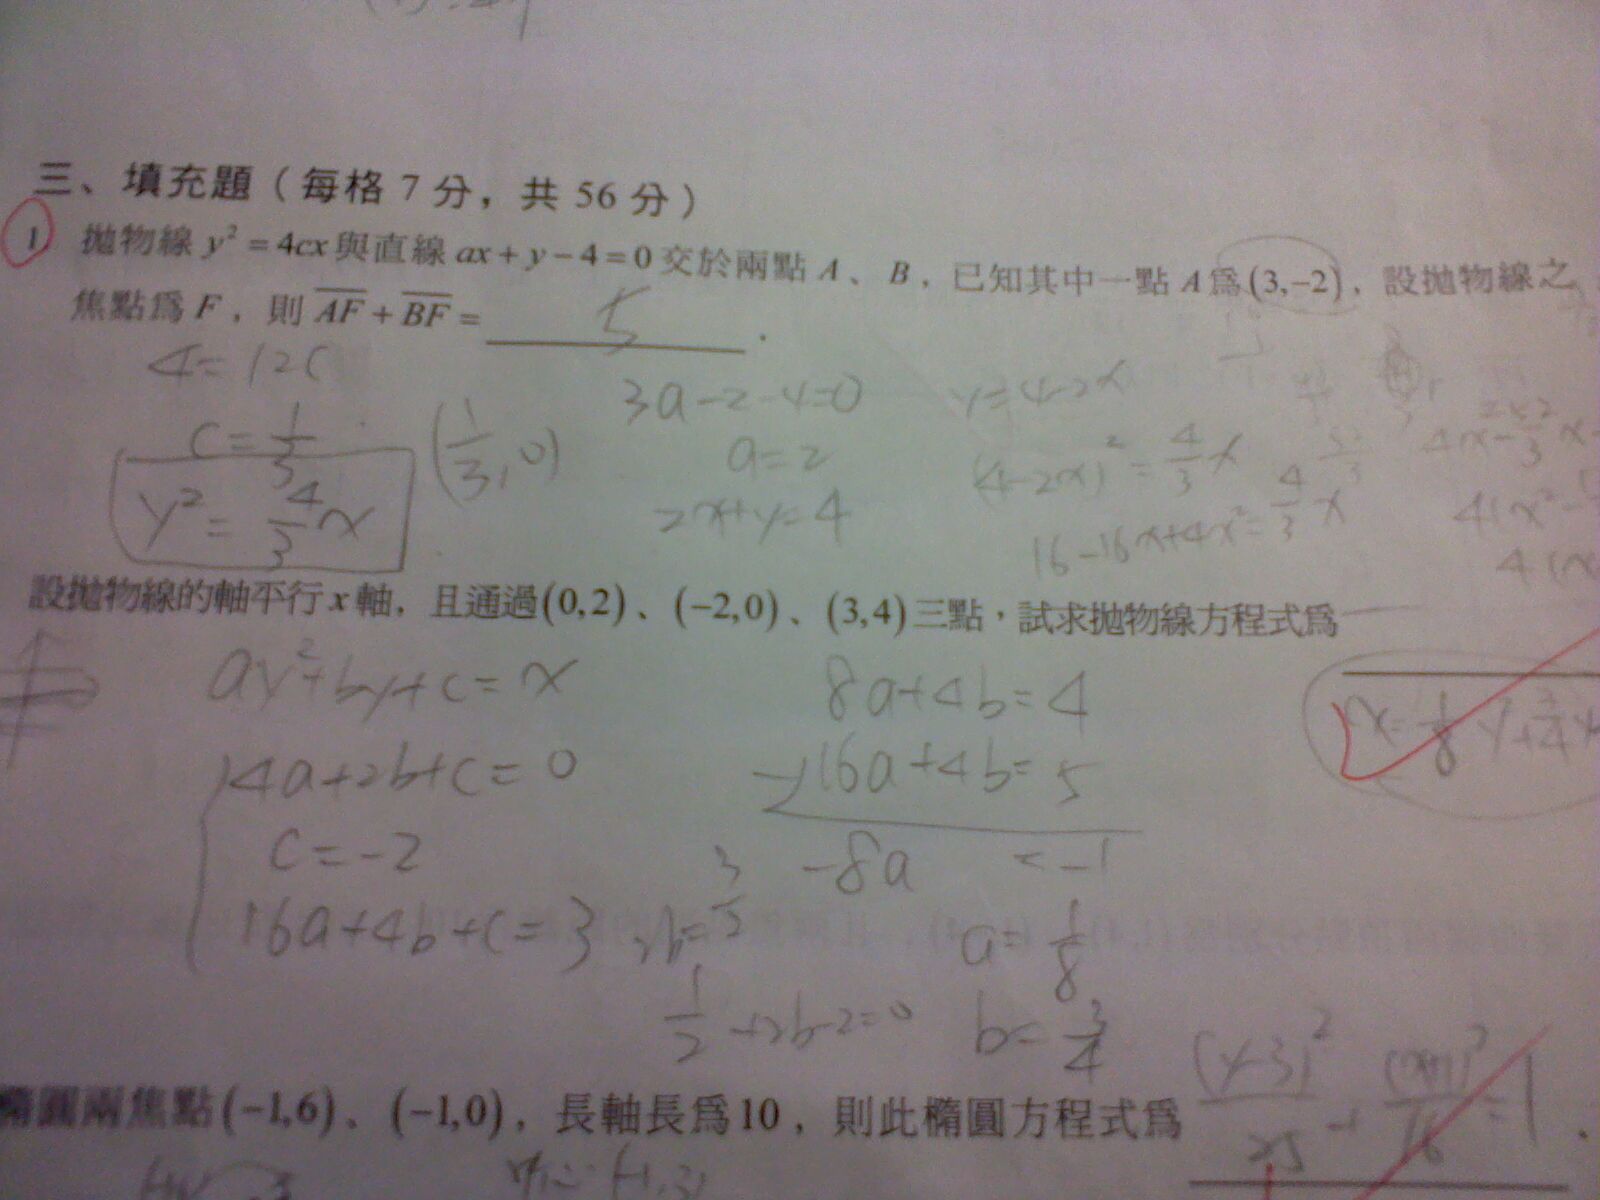 三、填充題（每格 7 分，共 56 分）
1 拋物線 y² = 4cx 與直線 ax + y − 4 = 0 交於兩點 A、B，已知其中一點 A 為 (3,−2)，設拋物線之
焦點為 F，則 AF + BF = 5 .
4 = 12c
c = 1/3
(1/3, 0)
y² = 4/3 x
3a−2−4=0
a=2
2x+y=4
y=4−2x
(4−2x)² = 4/3 x
16−16x+4x² = 4/3 x
設拋物線的軸平行 x 軸，且通過 (0,2)、(−2,0)、(3,4) 三點，試求拋物線方程式為
ay²+by+c=x
4a+2b+c=0
c=−2
16a+4b+c=3
8a+4b=4
−) 16a+4b=5
−8a = −1
a = 1/8
1/2 +2b−2=0
b = 3/4
2b = 3/2
橢圓兩焦點 (−1,6)、(−1,0)，長軸長為 10，則此橢圓方程式為 (y−3)²/25 + (x+1)²/16 = 1 .